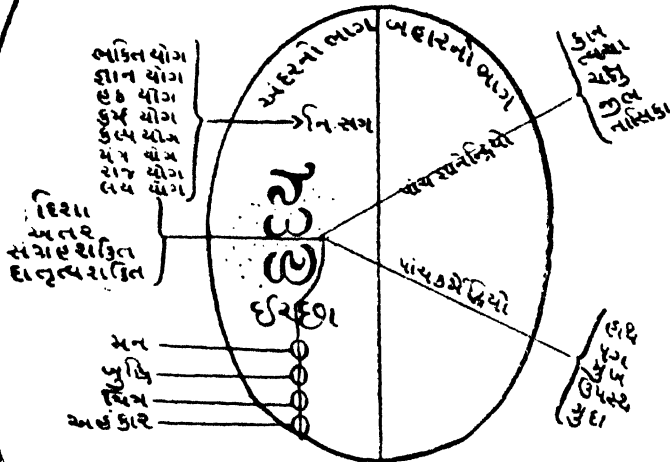 અંદરનો ભાગ
બહારનો ભાગ
ભકિત યોગ
જ્ઞાન યોગ
હઠ યોગ
કર્મ યોગ
મંત્ર યોગ
રાજ યોગ
લય યોગ
નિ.સગ
દિશા
અંતર
સંગ્રહ શકિત
દાતૃત્વ શકિત
હૃદય
ઈચ્છા
મન
બુદ્ધિ
ચિત્ત
અહંકાર
પાંચ જ્ઞાનેન્દ્રિયો
પાંચ કર્મેન્દ્રિયો
કાન
ત્વચા
ચક્ષુ
જીભ
નાસિકા
હાથ
પગ
મુખ
ઉપસ્થ
ગુદા